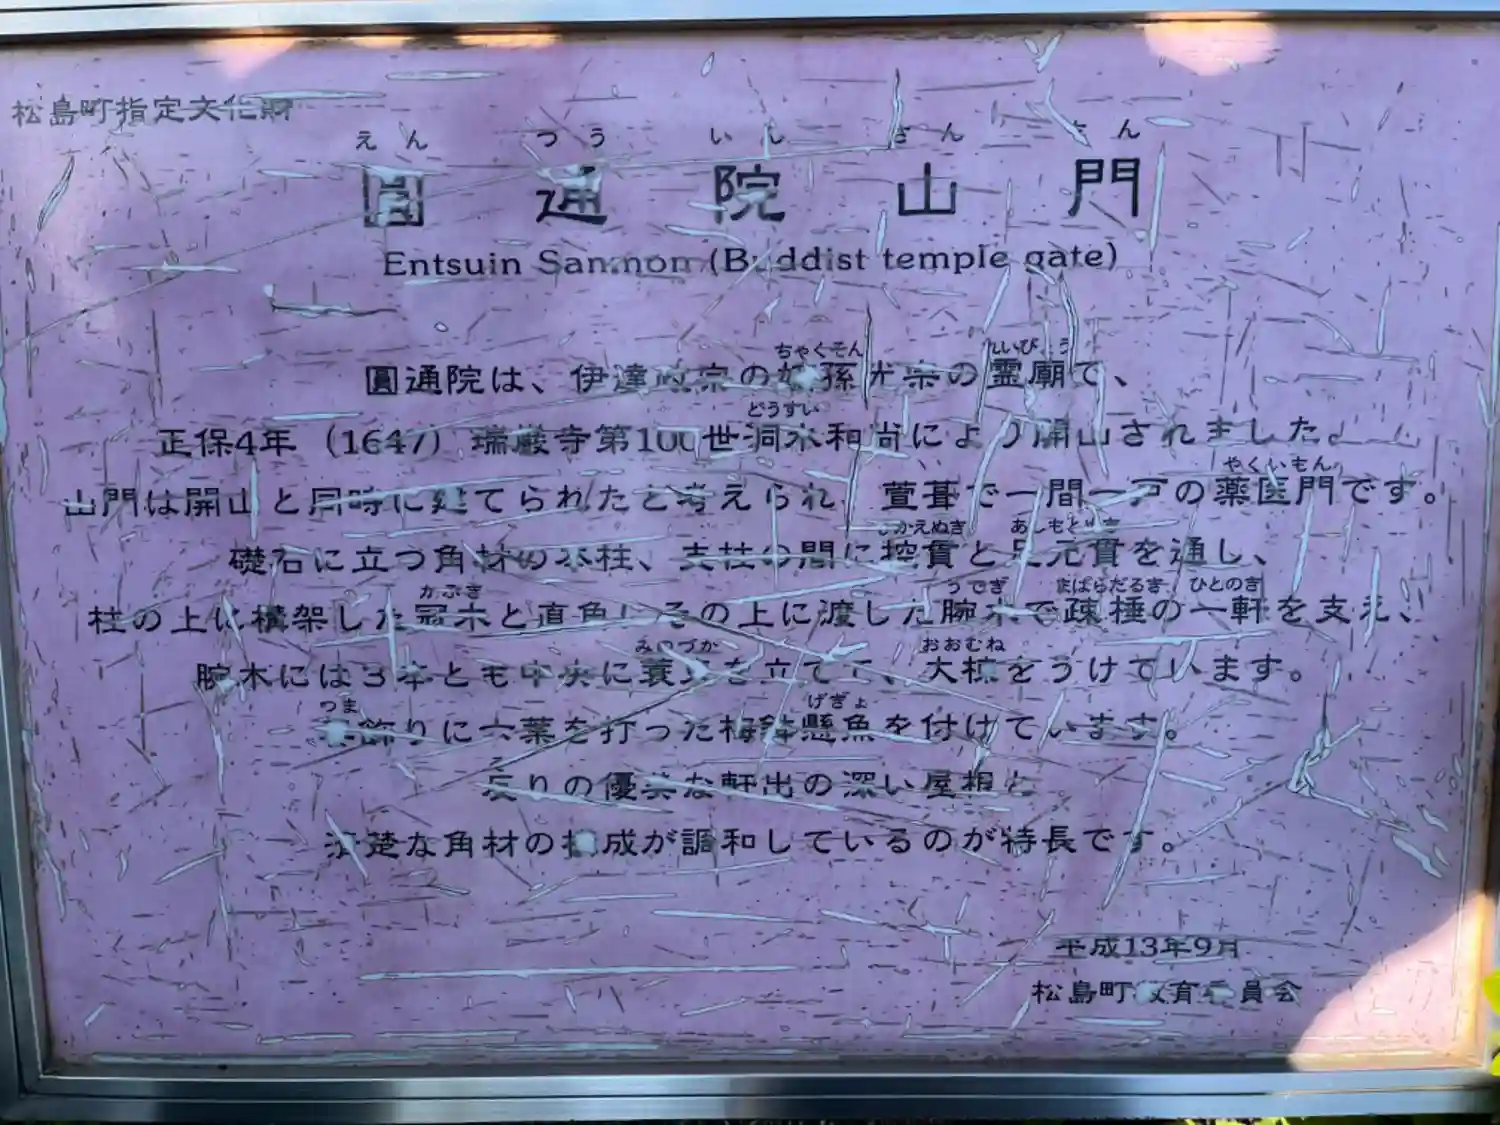 松島町指定文化財
えん つう いん さん もん
圓通院山門
Entsuin Sanmon (Buddhist temple gate)
ちゃくそん れいびょう
圓通院は、伊達政宗の嫡孫光宗の霊廟で、
どうすい
正保4年（1647）瑞巌寺第100世洞水和尚により開山されました。
やくいもん
山門は開山と同時に建てられたと考えられ、萱葺で一間一戸の薬医門です。
ひかえぬき あしもとぬき
礎石に立つ角材の本柱、支柱の間に控貫と足元貫を通し、
かぶき うでぎ まばらだるき ひとのき
柱の上に構架した冠木と直角にその上に渡した腕木で疎棰の一軒を支え、
みのづか おおむね
腕木には3本とも中央に蓑束を立てて、大棟をうけています。
つま げぎょ
妻飾りに六葉を打った梅鉢懸魚を付けています。
そ
反りの優美な軒出の深い屋根と
清楚な角材の構成が調和しているのが特長です。
平成13年9月
松島町教育委員会